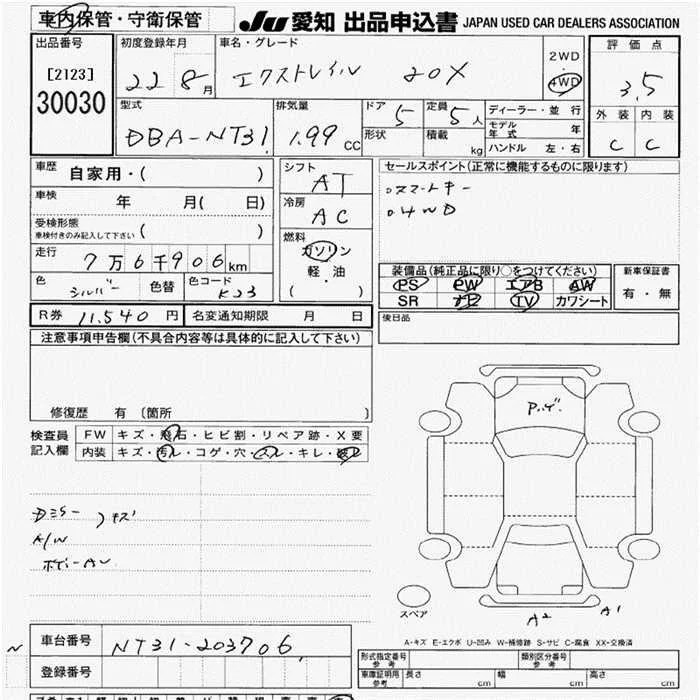 車内保管・守衛保管
JU 愛知 出品申込書 JAPAN USED CAR DEALERS ASSOCIATION
出品番号
[2123]
30030
初度登録年月
22 8月
車名・グレード
エクストレイル 20X
2WD
・
4WD
評価点
3.5
外装 内装
C C
型式
DBA-NT31
排気量
1.99 CC
ドア 5
形状
定員 5人
積載 kg
ディーラー・並行
モデル年式 年
ハンドル 左・右
車歴 自家用・( )
車検 年 月( 日)
受検形態
車検付きのみ記入して下さい ( )
走行 7万6千906km
色 シルバー 色替 色コード K23
シフト
AT
冷房
AC
燃料
ガソリン
軽・油
( )
セールスポイント(正常に機能するものに限ります)
。スマートキー
。4WD
装備品(純正品に限り○をつけてください)
PS PW エアB AW
SR ナビ TV カワシート
新車保証書
有・無
R券 11,540 円 名変通知期限 月 日
後日品
注意事項申告欄(不具合内容等は具体的に記入して下さい)
修復歴 有 〔箇所 〕
検査員
記入欄
FW キズ・飛石・ヒビ割・リペア跡・X要
内装 キズ・汚れ・コゲ・穴・スレ・キレ・
Dミラー 〉キズ
A/W
ボディーAU
P.ゲ.
スペア
A2 A1
A-キズ E-エクボ U-凹み W-補修跡 S-サビ C-腐食 XX-交換済
車台番号 NT31-203706
登録番号
型式指定番号
参考
類別区分番号
参考
車庫証明用
参考
長さ cm 幅 cm 高さ cm